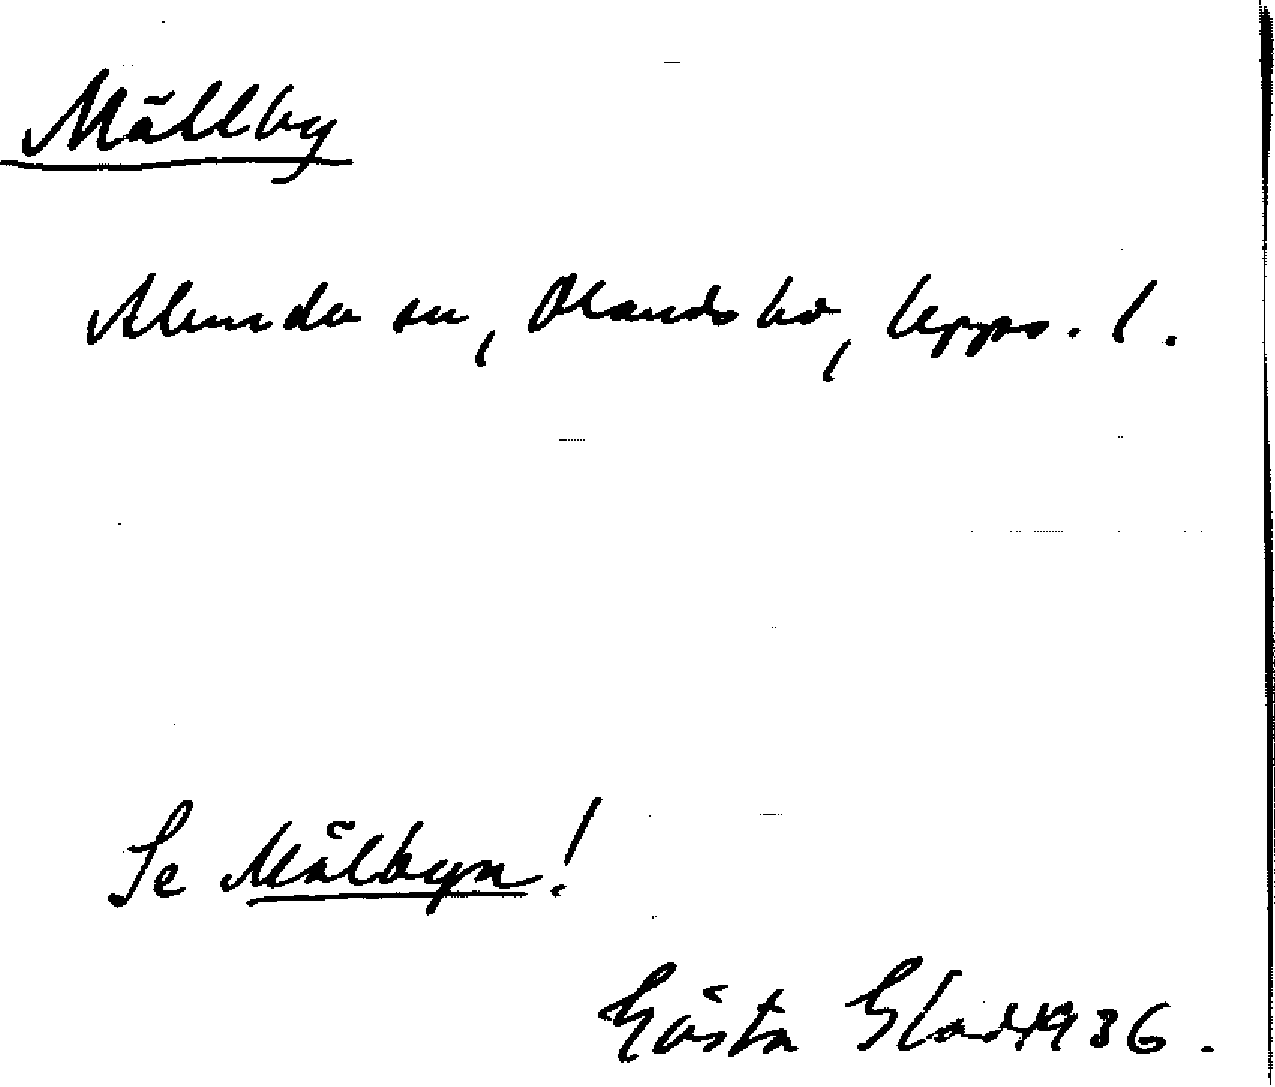 Mällby
Alunda sn, Olands hd, Upps. l.
Se Mälbyn!
Gösta Blad 1936.